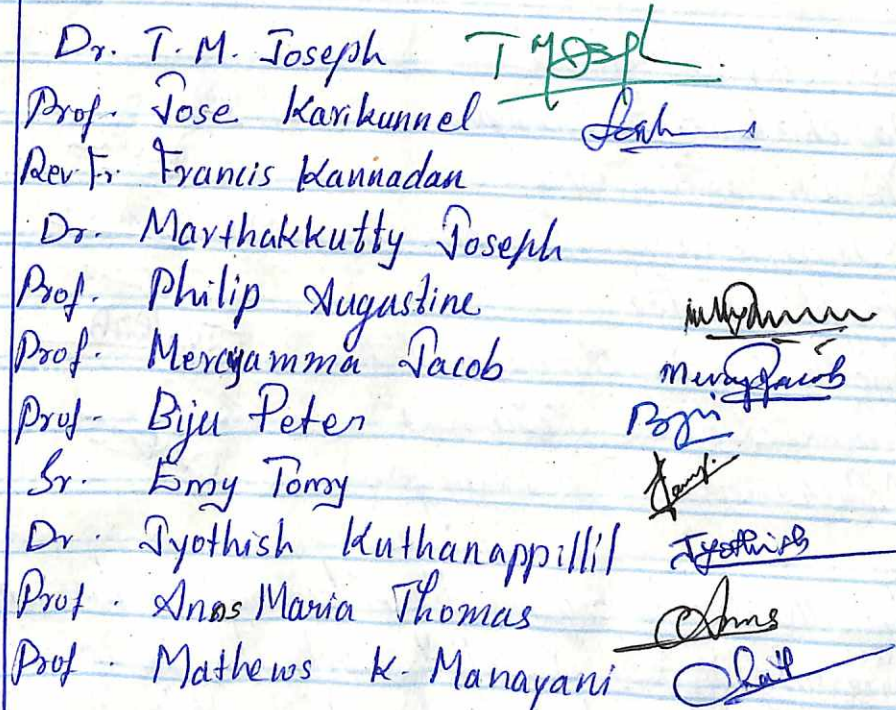 Dr. T. M. Joseph TMJoseph
Prof. Jose Karikunnel
Rev. Fr. Francis Kannadan
Dr. Marthakkutty Joseph
Prof. Philip Augustine
Prof. Mercyamma Jacob Mercy Jacob
Prof. Biju Peter Biju
Sr. Emy Tomy
Dr. Jyothish Kuthanappillil Jyothish
Prof. Anns Maria Thomas Anns
Prof. Mathews K. Manayani